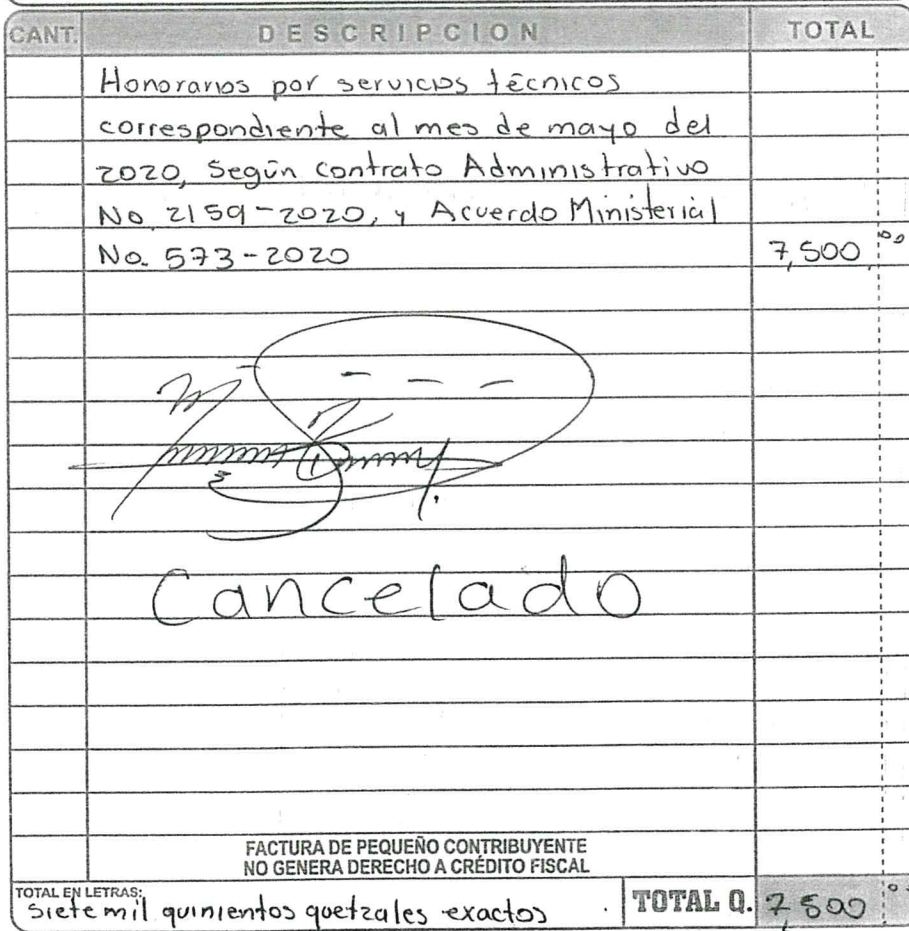 CANT. DESCRIPCION TOTAL
Honorarios por servicios técnicos
correspondiente al mes de mayo del
2020, Según Contrato Administrativo
No. 2159-2020, y Acuerdo Ministerial
No. 573-2020 7,500.00
Cancelado
FACTURA DE PEQUEÑO CONTRIBUYENTE
NO GENERA DERECHO A CRÉDITO FISCAL
TOTAL EN LETRAS:
Siete mil quinientos quetzales exactos. TOTAL Q. 7,500.00